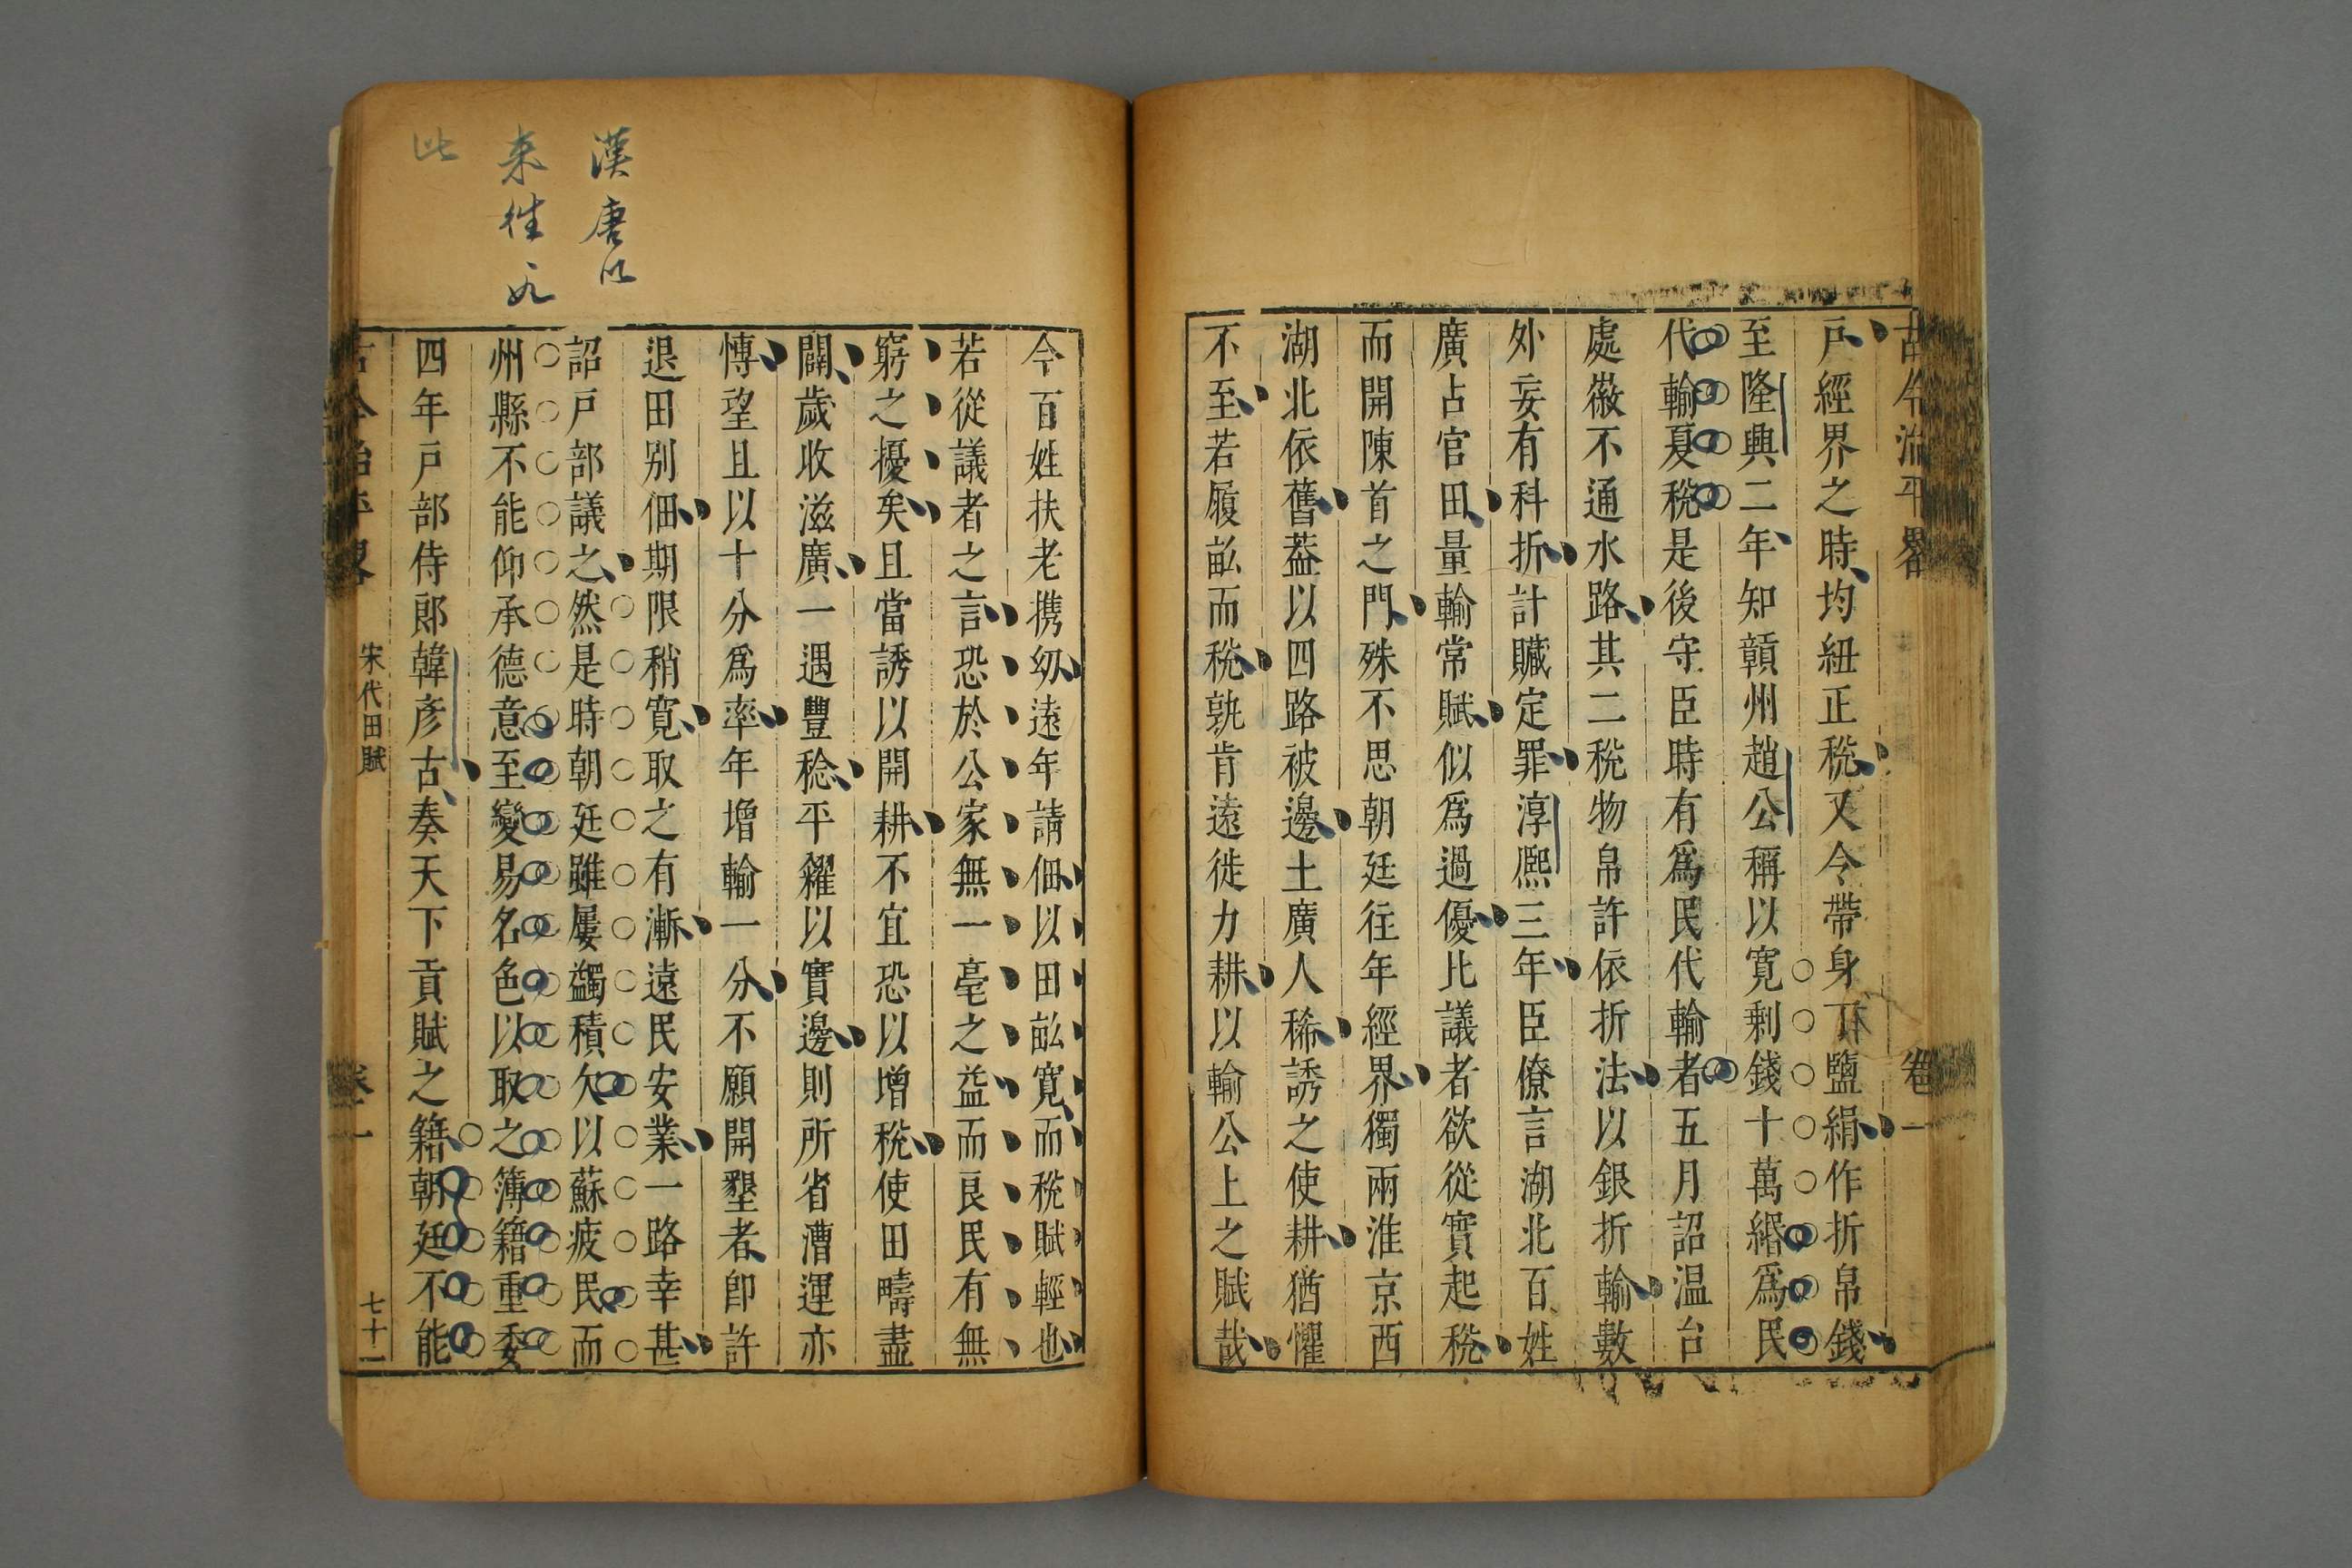 戶經界之時均紐正稅又令帶身丁鹽絹作折帛錢
至隆興二年知贑州趙公稱以寬剩錢十萬緡爲民
代輸夏稅是後守臣時有爲民代輸者五月詔温台
處徽不通水路其二稅物帛許依折法以銀折輸數
外妄有科折計贓定罪淳熈三年臣僚言湖北百姓
廣占官田量輸常賦似爲過優比議者欲從實起稅
而開陳首之門殊不思朝廷往年經界獨兩淮京西
湖北依舊葢以四路被邊土廣人稀誘之使耕猶懼
不至若履畝而稅孰肯遠徙力耕以輸公上之賦哉
今百姓扶老携幼遠年請佃以田畝寛而稅賦輕也
若從議者之言恐於公家無一毫之益而良民有無
窮之擾矣且當誘以開耕不宜恐以增稅使田疇盡
闢歲收滋廣一遇豐稔平糴以實邊則所省漕運亦
愽望且以十分爲率年增輸一分不願開墾者卽許
退田别佃期限稍寛取之有漸遠民安業一路幸甚
詔戸部議之然是時朝廷雖屢蠲積欠以蘇疲民而
州縣不能仰承德意至變易名色以取之簿籍重委
四年戸部侍郎韓彦古奏天下貢賦之籍朝廷不能
宋代田賦
卷一
七十二
漢唐以
来往

此